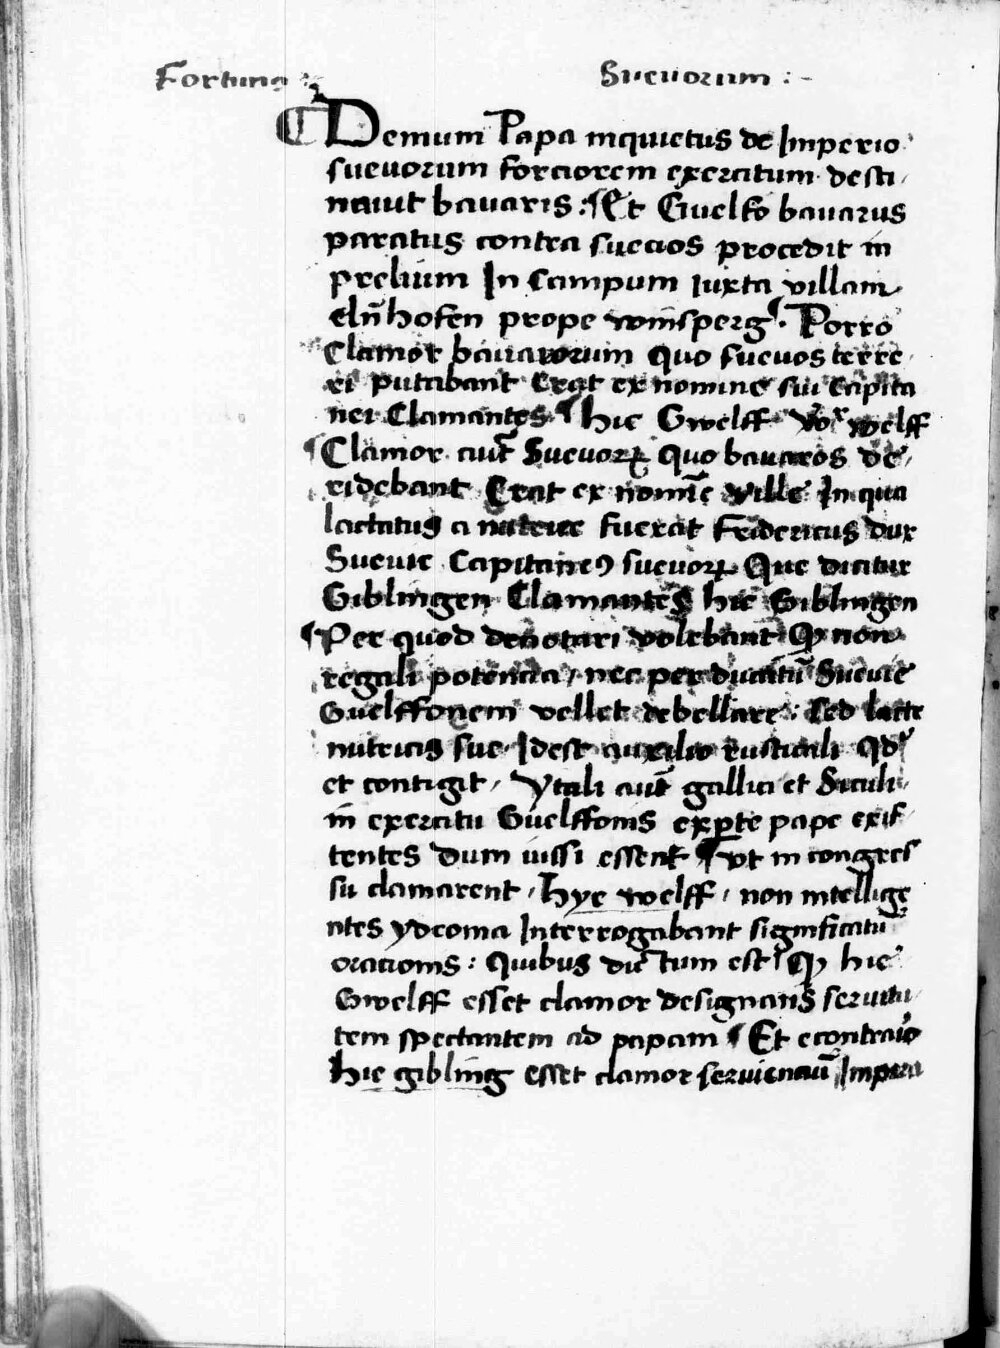 Fortuna :
Suevorum : -
¶ Demum Papa inquietus de Imperio
suevorum forciorem exercitum desti
navit bavaris : ¶ Et Guelfo bavarus
paratus contra suevos procedit in
prelium In Campum iuxta villam
eln̄hofen prope winsperg . Porro
Clamor bavarorum Quo suevos terre
ri putabant Erat ex nomine sui Capita
nei Clamantes ¶ hie Gwelff welff
¶ Clamor aut̄ Suevoꝝ Quo bavaros de
ridebant Erat ex noīe ville In qua
lactatus a nutrice fuerat Fridericus dux
Suevie Capitaneꝰ suevoꝝ Que dicitur
Giblingen Clamantes hie Giblingen
¶ Per quod denotari volebant Qꝫ non
regali potencia / nec per ducatū Suevie
Guelffonem vellet debellare : Sed lacte
nutricis sue Idest auxilio rusticali Qd
et contigit / Ytali aut̄ gallici et Siculi
in exercitu Guelffonis exꝑte pape exis
tentes dum iussi essent ¶ vt in congres
su clamarent / hye welff / non intellige
ntes ydeoma Interrogabant significatū
oracionis : Quibus dictum est Qꝫ hie
Gwelff esset clamor designans servitu
tem spectantem ad papam ¶ Et econtrario
hie gibling esset clamor serviencium Impera